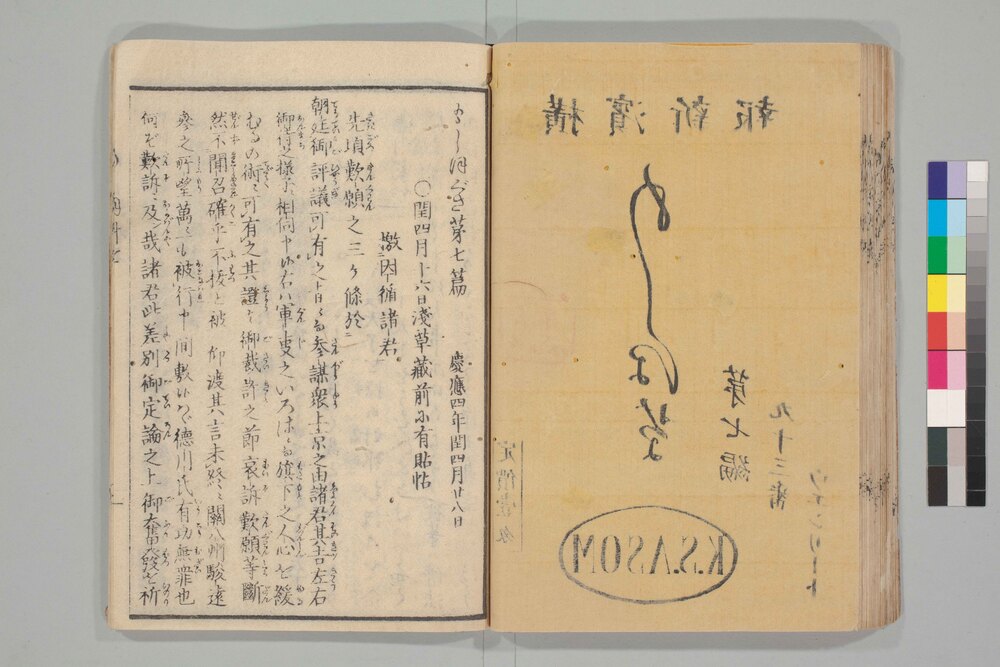 横濱新報
もしほ草
第七編
九十三番
ウエンリート
定價壹匁
K.S.ASOM
もしほぐさ第七篇 慶應四年閏四月廿八日
〇閏四月十六日淺草藏前に有貼帖
檄因循諸君
先頃歎願之三ヶ條於
朝廷御評議可有之旨
參謀衆上京之由諸君其吉左右
御待之樣子相伺申候右ハ軍吏之いろは旗下之人心を緩
むるの術可有之其證ハ御裁許之節哀訴歎願等斷
然不聞召確乎不拔と被 仰渡其言未終關八州駿遠
參之所望萬々も被行申間敷候ハバ德川氏有功無罪也
何ぞ歎訴及哉諸君此差別御定論之上御奮發を祈